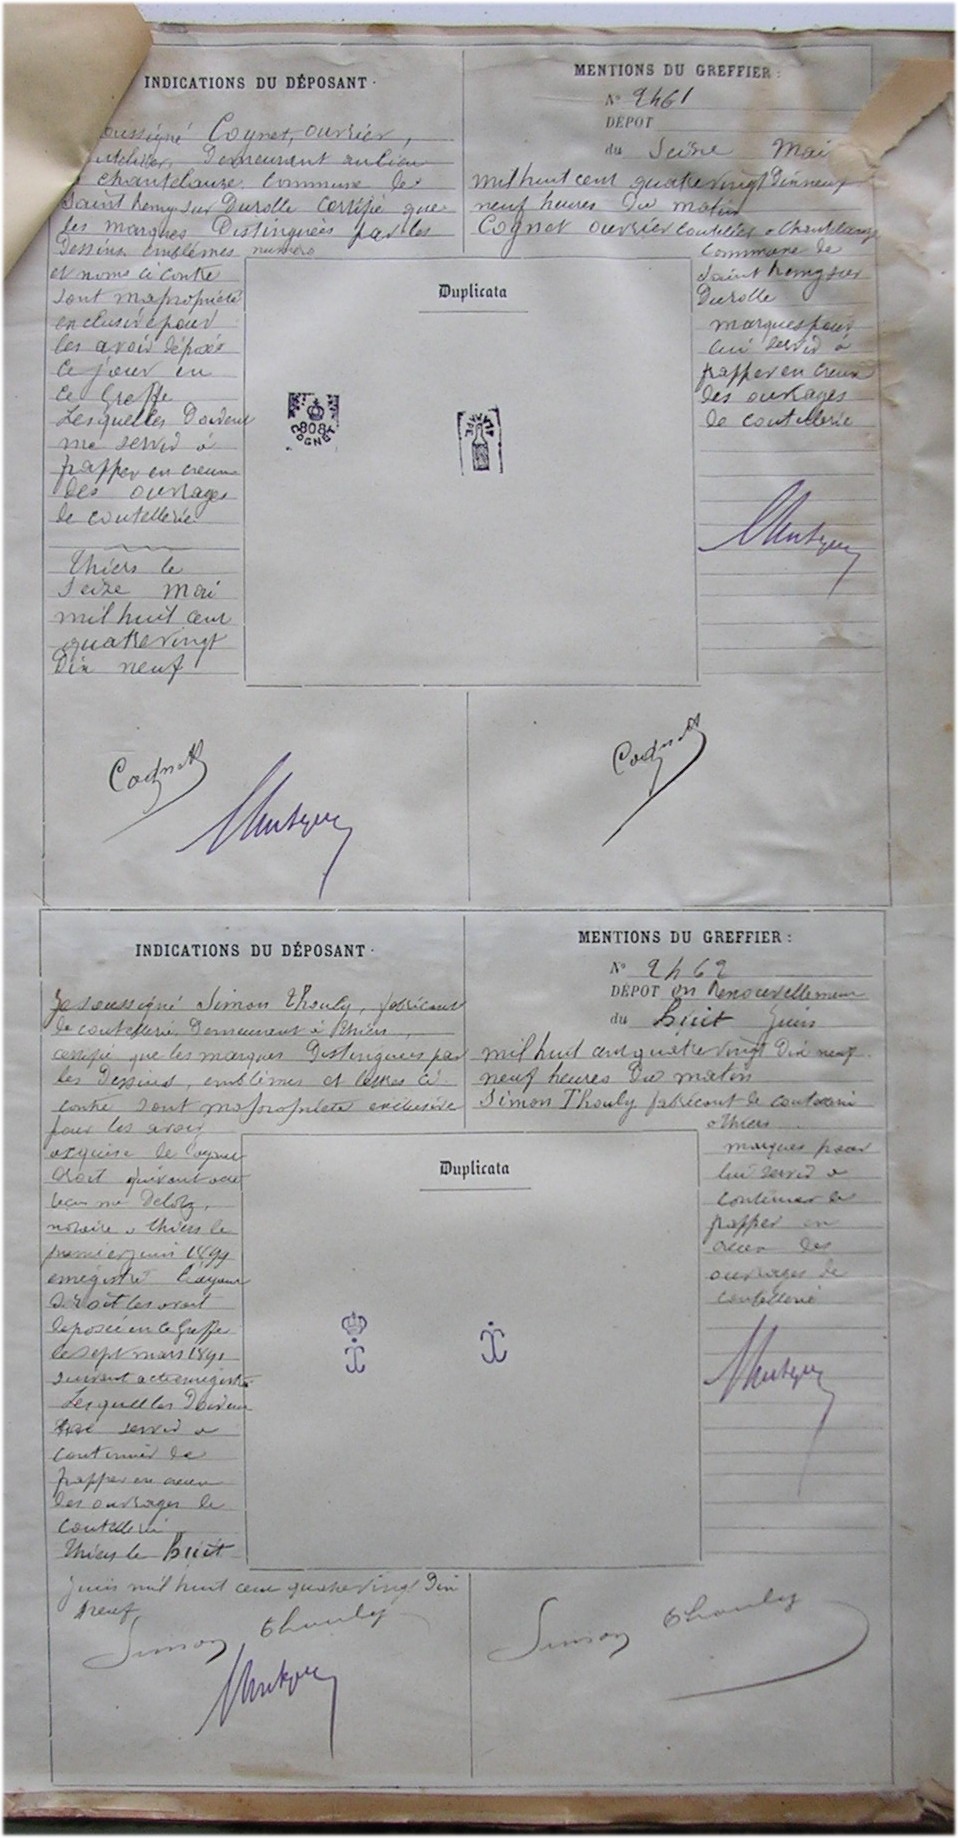 INDICATIONS DU DÉPOSANT
oussigné Cognet, ouvrier,
coutelier, Demeurant aulieu
chantelauze commune de
Saint Remy sur Durolle Certifie que
les marques Distinguées par les
Dessins emblêmes numéro
et noms ci contre
sont mapropriété
exclusive pour
les avoir déposé
ce jour en
ce Greffe
Lesquelles Doivent
me servir à
frapper en creux
des ouvrages
de coutellerie
Thiers le
seize mai
mil huit cent
quatrevingt
Dix neuf
MENTIONS DU GREFFIER :
N° 2461
DÉPOT
du Seize Mai
mil huit cent quatre vingt Dix neuf
neuf heures du matin
Cognet ouvrier coutelier a Chantelauze
commune de
Saint Remy sur
Durolle
marques pour
lui servir à
frapper en creux
des ouvrages
de coutellerie
Duplicata
808
COGNET
Cognet
Cognet
INDICATIONS DU DÉPOSANT
Je soussigné Simon Thouly, fabricant
de coutellerie, Demeurant à Thiers,
certifie que les marques Distinguées par
les Dessins, emblêmes et lettres ci
contre sont mapropriété exclusive
pour les avoir
acquise de
droit suivant acte
reçu me
notaire a Thiers le
premier juin 1899
enregistré
droit les avait
déposé en ce Greffe
le sept mars 1891
suivant acte enregistré
Lesquelles Doivent
me servir a
continuer de
frapper en creux
des ouvrages de
coutellerie
Thiers le Huit
juin mil huit cent quatrevingt Dix
neuf
MENTIONS DU GREFFIER :
N° 2462
DÉPOT en Renouvellement
du Huit Juin
mil huit cent quatre vingt Dix neuf
neuf heures Du matin
Simon Thouly fabricant de
a Thiers
marques pour
lui servir a
continuer de
frapper en
creux des
ouvrages de
coutellerie
Duplicata
Simon Thouly
Simon Thouly